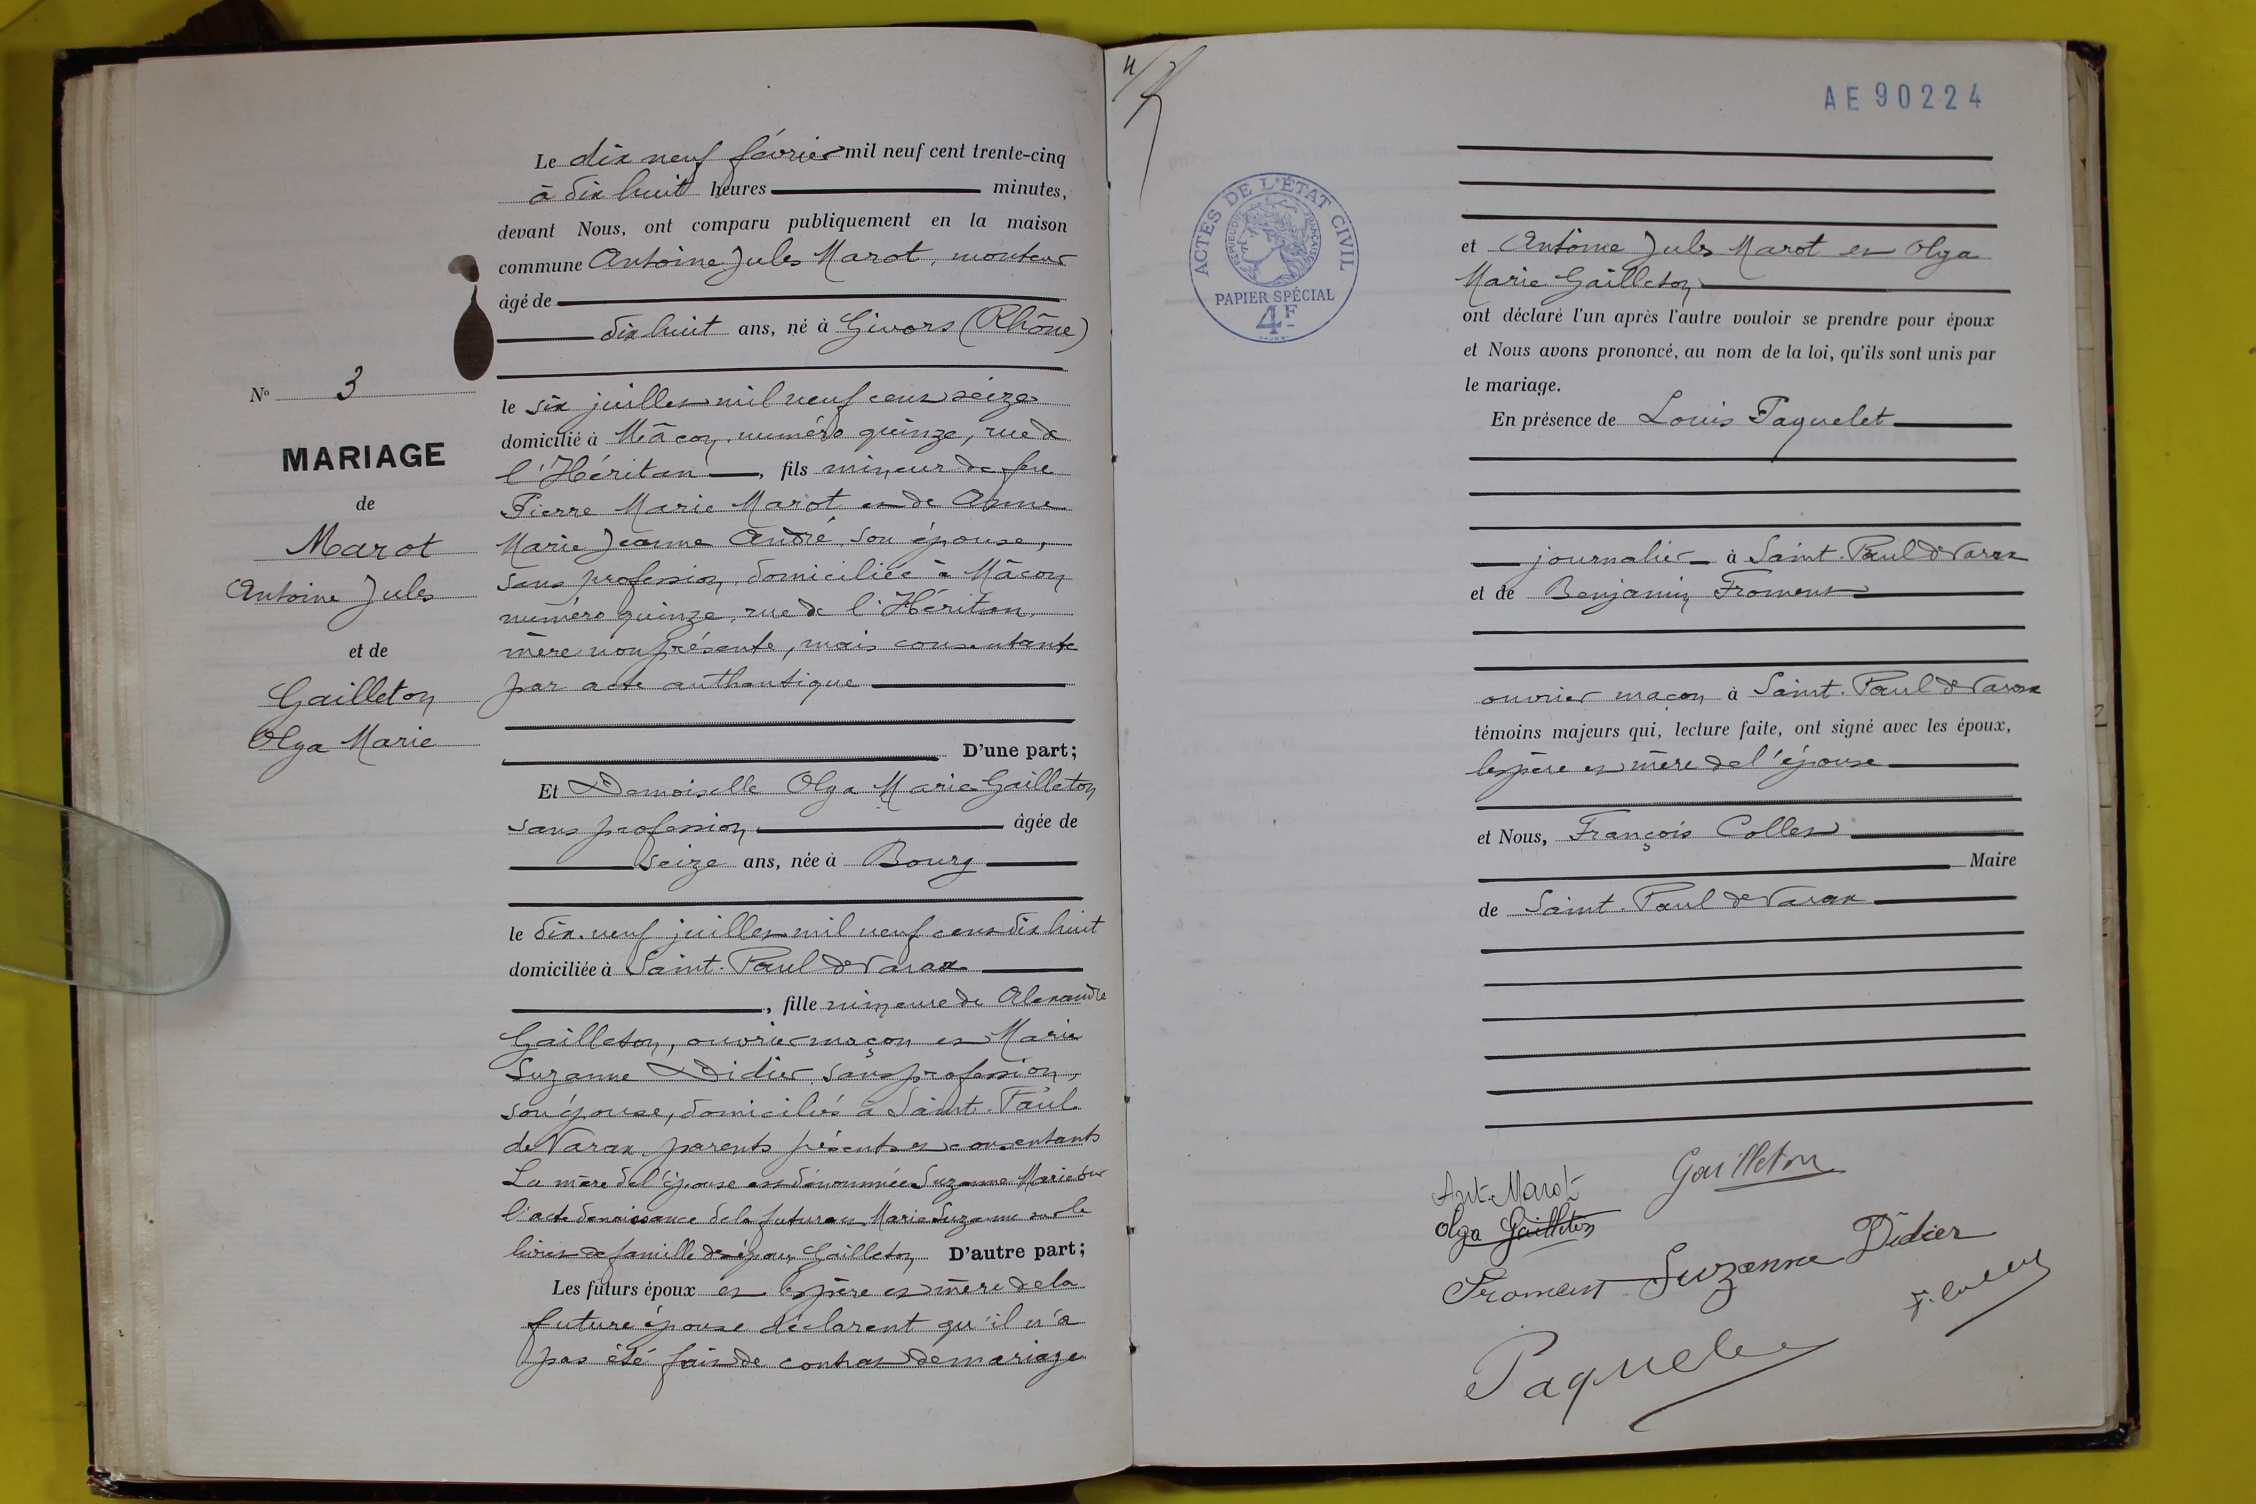 N° 3
MARIAGE
de
Marot
Antoine Jules
et de
Gailleton
Olga Marie
Le dix neuf février mil neuf cent trente-cinq
à dix huit heures minutes,
devant Nous, ont comparu publiquement en la maison
commune Antoine Jules Marot, monteur
âgé de
dix huit ans, né à Givors (Rhône)
le six juillet mil neuf cent seize
domicilié à Mâcon, numéro quinze, rue de
l'Héritan, fils mineur de feu
Pierre Marie Marot et de Anne
Marie Jeanne André, son épouse,
sans profession, domiciliée à Mâcon
numéro quinze, rue de l'Héritan,
mère non présente, mais consentante
par acte authentique
D'une part;
Et Demoiselle Olga Marie Gailleton
sans profession âgée de
seize ans, née à Bourg
le dix-neuf juillet mil neuf cent dix huit
domiciliée à Saint-Paul de Varax
, fille mineure de Alexandre
Gailleton, ouvrier maçon et Marie
Suzanne Didier, sans profession,
son épouse, domiciliés à Saint-Paul
de Varax, parents présents et consentants
La mère de l'épouse est dénommée Suzanne Marie sur
l'acte de naissance de la future et Marie Suzanne sur le
livret de famille des époux Gailleton D'autre part;
Les futurs époux et les père et mère de la
future épouse déclarent qu'il n'a
pas été fait de contrat de mariage
4
AE 90224
ACTES DE L'ÉTAT CIVIL
RÉPUBLIQUE FRANÇAISE
PAPIER SPÉCIAL
4F
et Antoine Jules Marot et Olga
Marie Gailleton
ont déclaré l'un après l'autre vouloir se prendre pour époux
et Nous avons prononcé, au nom de la loi, qu'ils sont unis par
le mariage.
En présence de Louis Paquelet
journalier à Saint-Paul de Varax
et de Benjamin Froment
ouvrier maçon à Saint-Paul de Varax
témoins majeurs qui, lecture faite, ont signé avec les époux,
les père et mère de l'épouse
et Nous, François Collet
Maire
de Saint-Paul de Varax
Ant. Marot Gailleton
Olga Gailleton
Froment Suzanne Didier
F. Collet
Paquelet